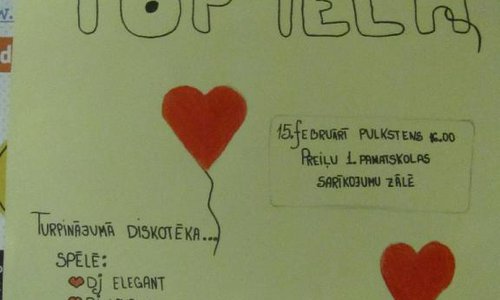 TOP IELA
15. FEBRUĀRĪ PULKSTENS 16.00
PREIĻU 1. PAMATSKOLAS
SARĪKOJUMU ZĀLĒ
TURPINĀJUMĀ DISKOTĒKA...
SPĒLĒ:
DJ ELEGANT
DJ